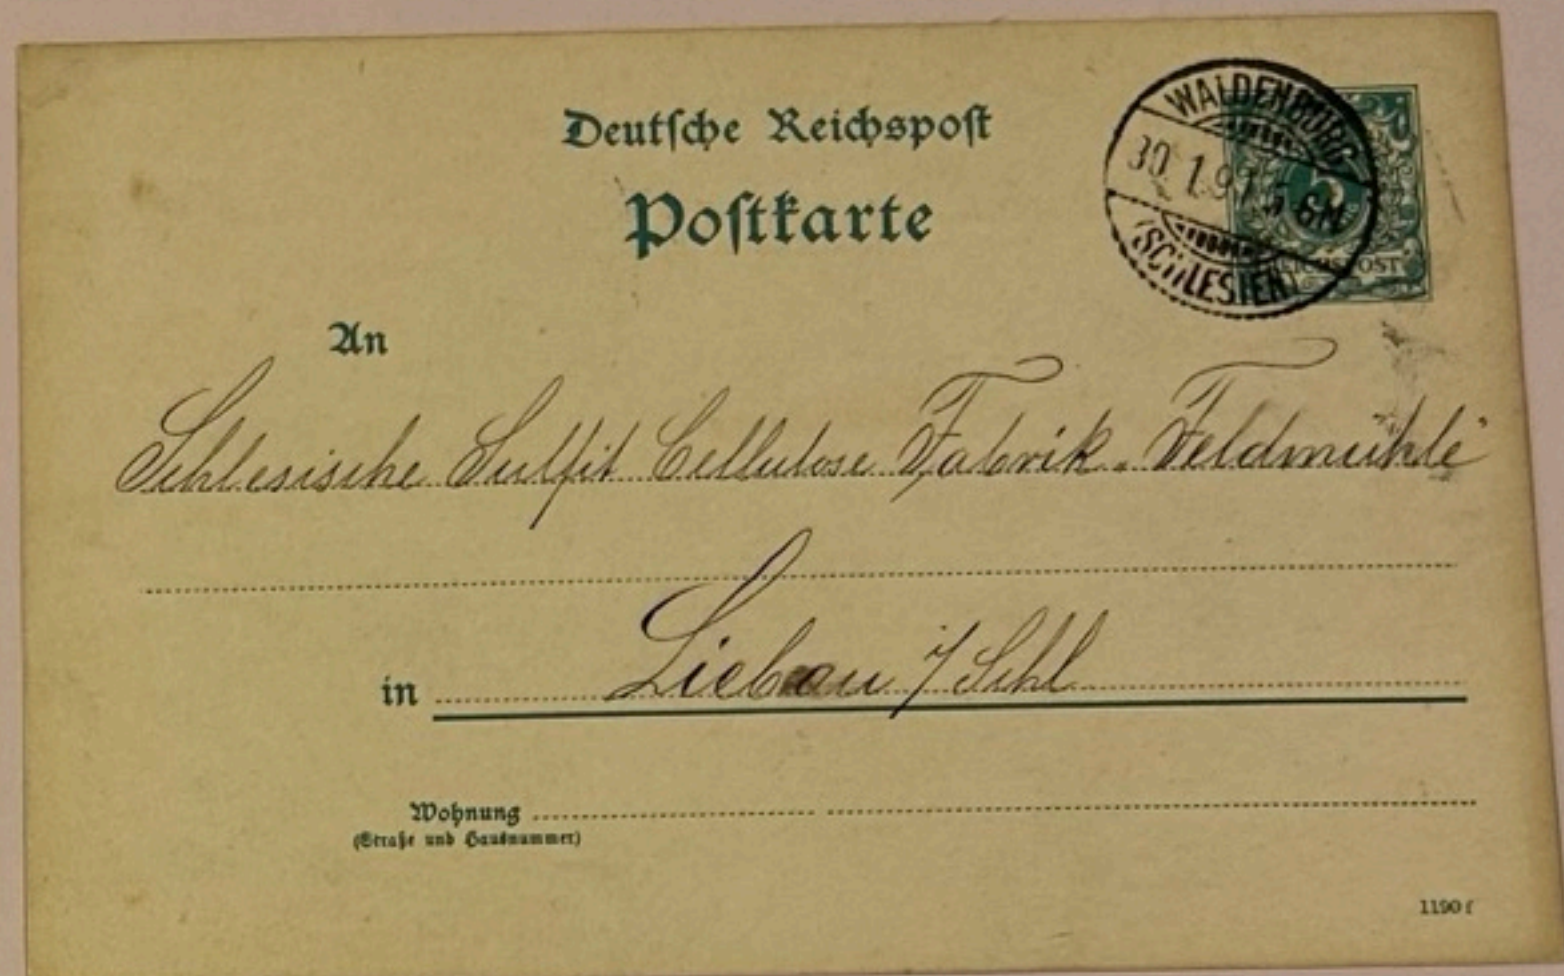 Deutsche Reichspost
Postkarte
WALDENBURG
30 1 91 5-6N
(SCHLESIEN)
5
REICHSPOST
An
Schlesische Sulfit Cellulose Fabrik „Feldmühle"
in Liebau i/Schl
Wohnung
(Straße und Hausnummer)
1190 f